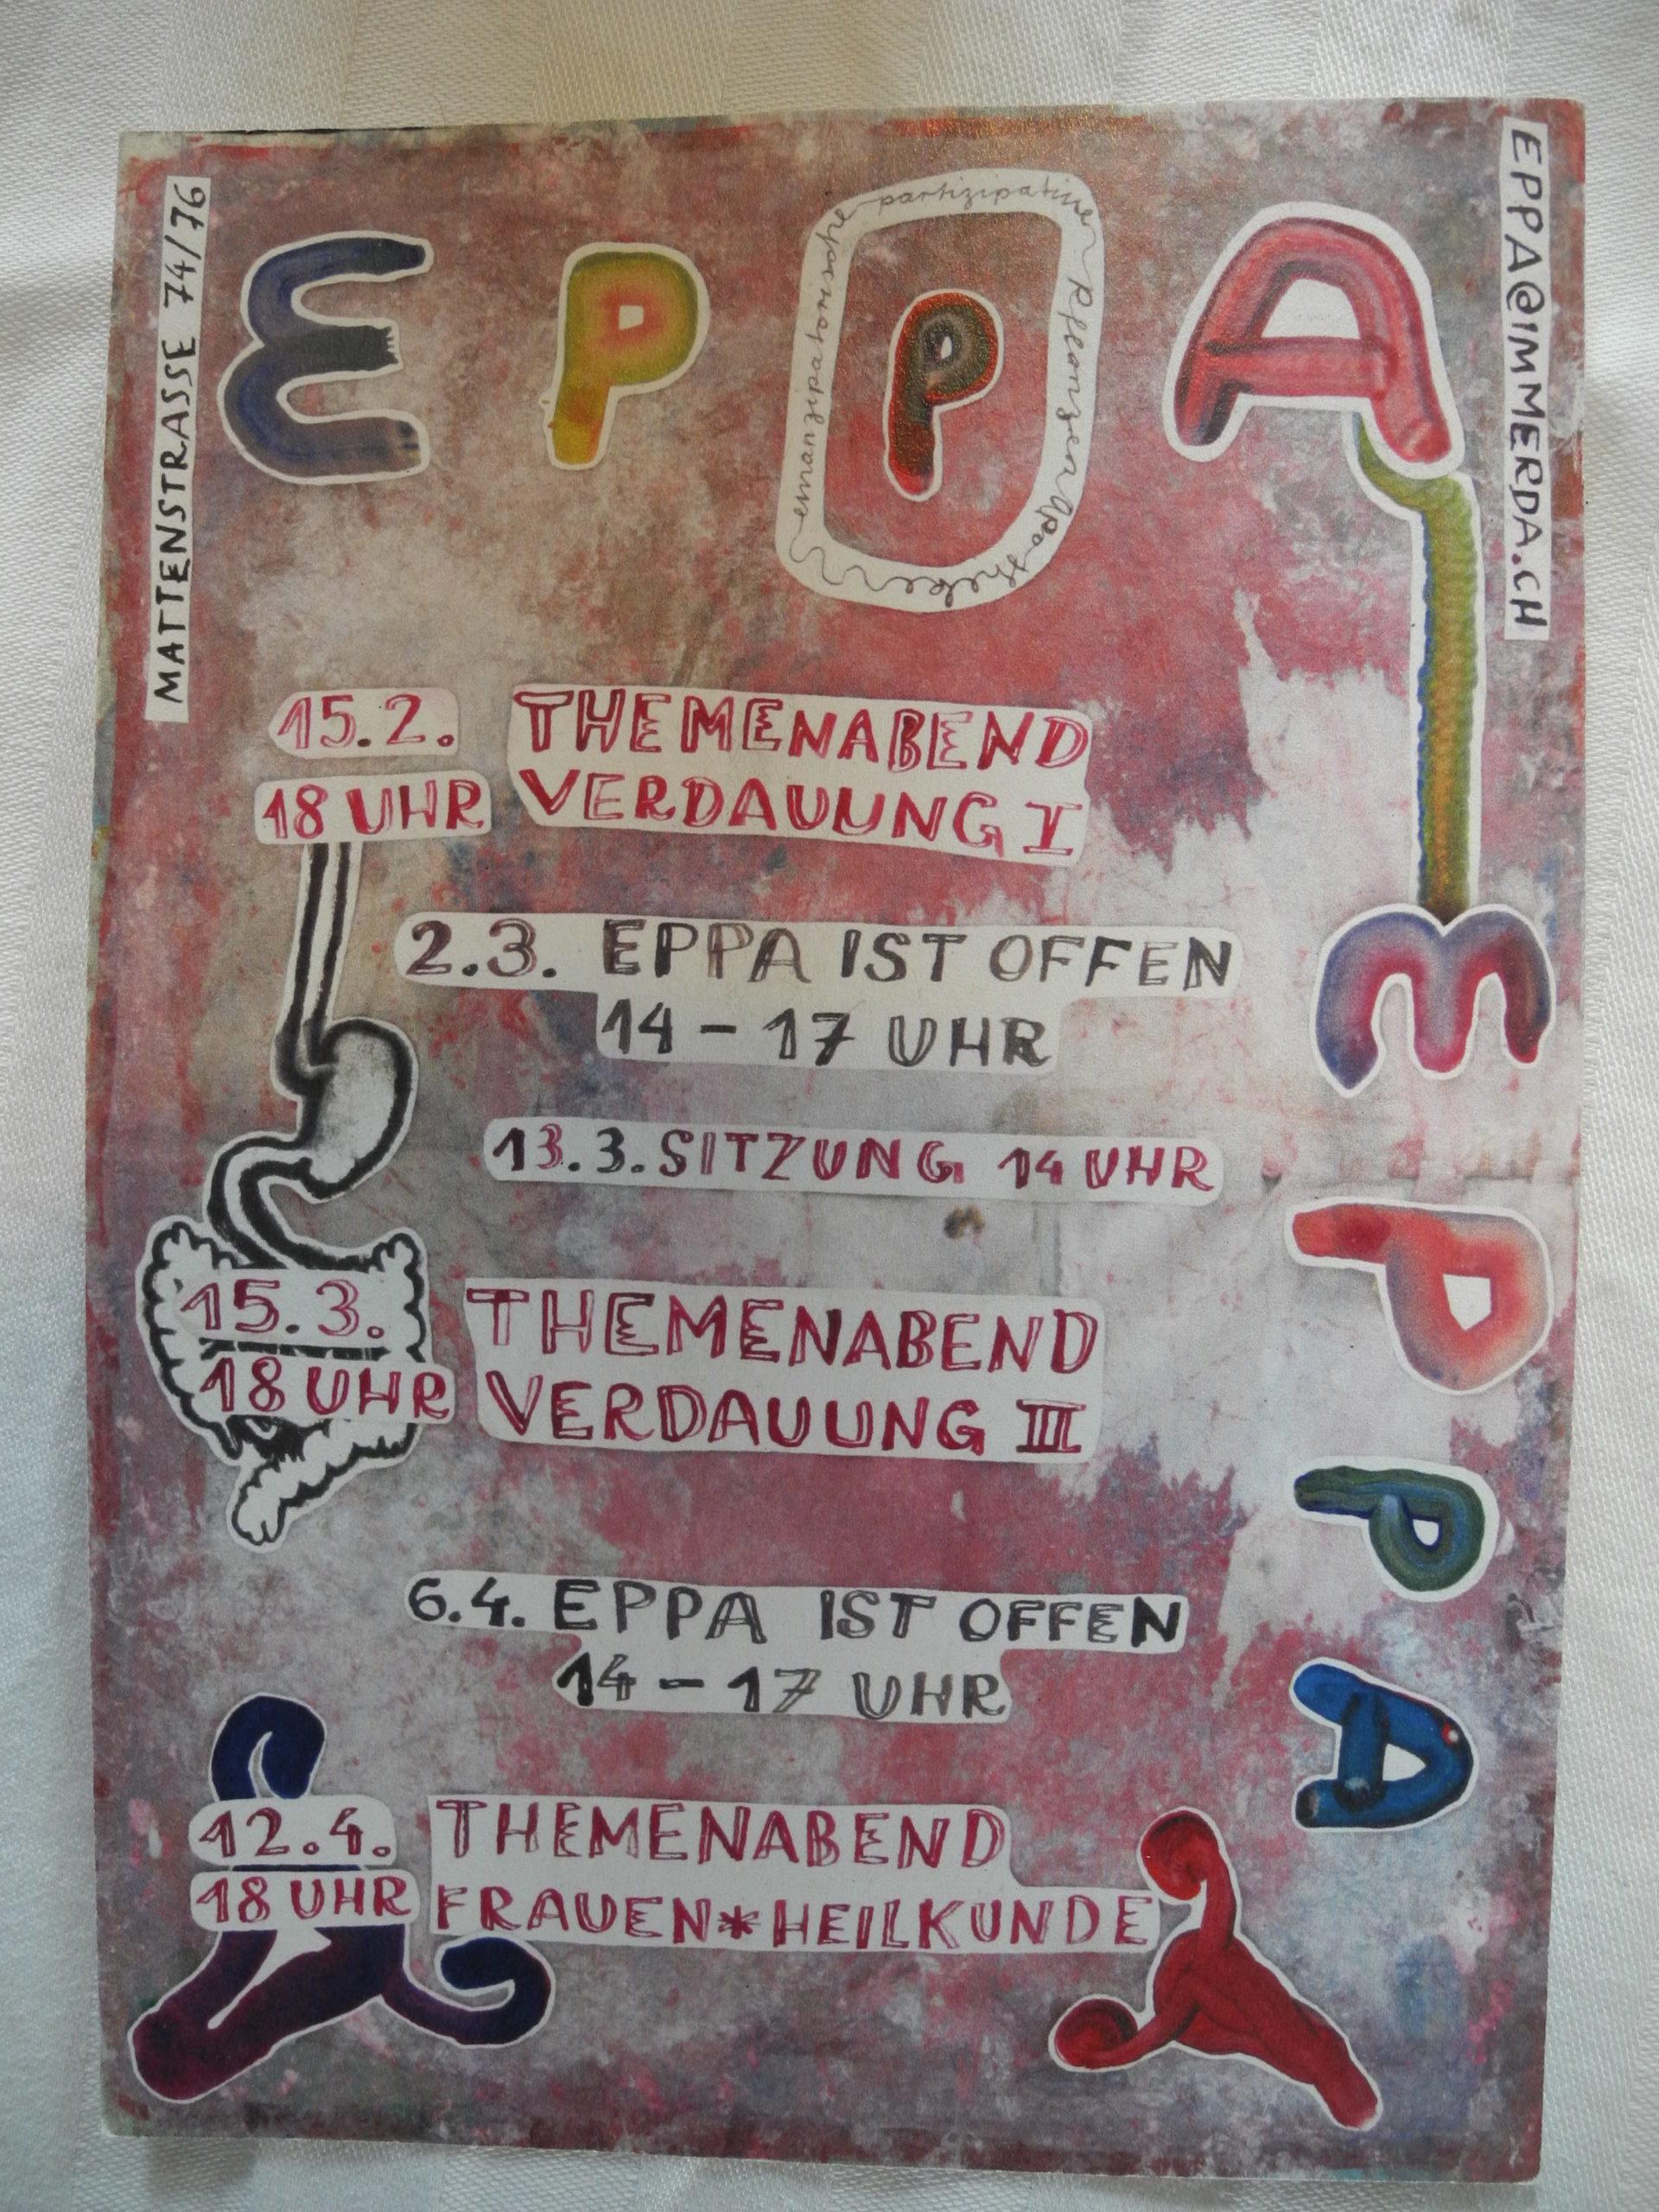 MATTENSTRASSE 74/76
EPPA
EPPA@IMMERDA.CH
partizipative
15.2. THEMENABEND
18 UHR VERDAUUNG I
2.3. EPPA IST OFFEN
14 – 17 UHR
13.3. SITZUNG 14 UHR
15.3. THEMENABEND
18 UHR VERDAUUNG III
6.4. EPPA IST OFFEN
14 – 17 UHR
12.4. THEMENABEND
18 UHR FRAUEN*HEILKUNDE
EPPA